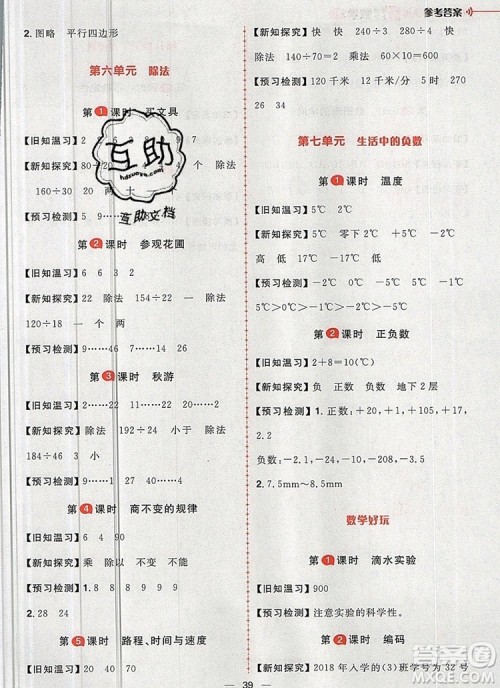 参考答案
2. 图略 平行四边形
第六单元 除法
第1课时 买文具
【旧知温习】2 2 8 8
【新知探究】80÷20
160÷30 两
【预习检测】9 5……40
第2课时 参观花圃
【旧知温习】6 6 3 2
【新知探究】22 除法 154÷22 除法
120÷18 一 个 两
【预习检测】9……6 7……14 17……7
第3课时 秋游
【旧知温习】2……2 2……21
【新知探究】除法 192÷24 小于 除法
192÷24
【预习检测】6……3 4……30 8
第4课时 商不变的规律
【旧知温习】6 4 90
【新知探究】乘 除以 不变 不能
【预习检测】1. 8 8 8
2. 28 24
第5课时 路程、时间与速度
【新知探究】快 快 280÷4 240÷3
除法 60×30 乘法 60×10=600
【预习检测】120千米 12千米/分 5时 270
26 34
第七单元 生活中的负数
第1课时 温度
【旧知温习】5℃
【新知探究】5℃ 零下2℃ +5℃ -2℃
低 低
【预习检测】+5℃>0℃>-1℃>-6℃
第2课时 正负数
【旧知温习】2+8=10(℃)
【新知探究】负 正负数 地下2层
【预习检测】1. 正数:+3,+105,+17,
2.2
负数:-9,-18,-32
2. 7.5mm~8.5mm
数学好玩
第1课时 滴水实验
【旧知温习】900
【预习检测】注意实验的科学性。
第2课时 编码
【新知探究】2018年入学的(3)班学号为32号
39
互助
hdzuoye.cn
互助文档
作业帮